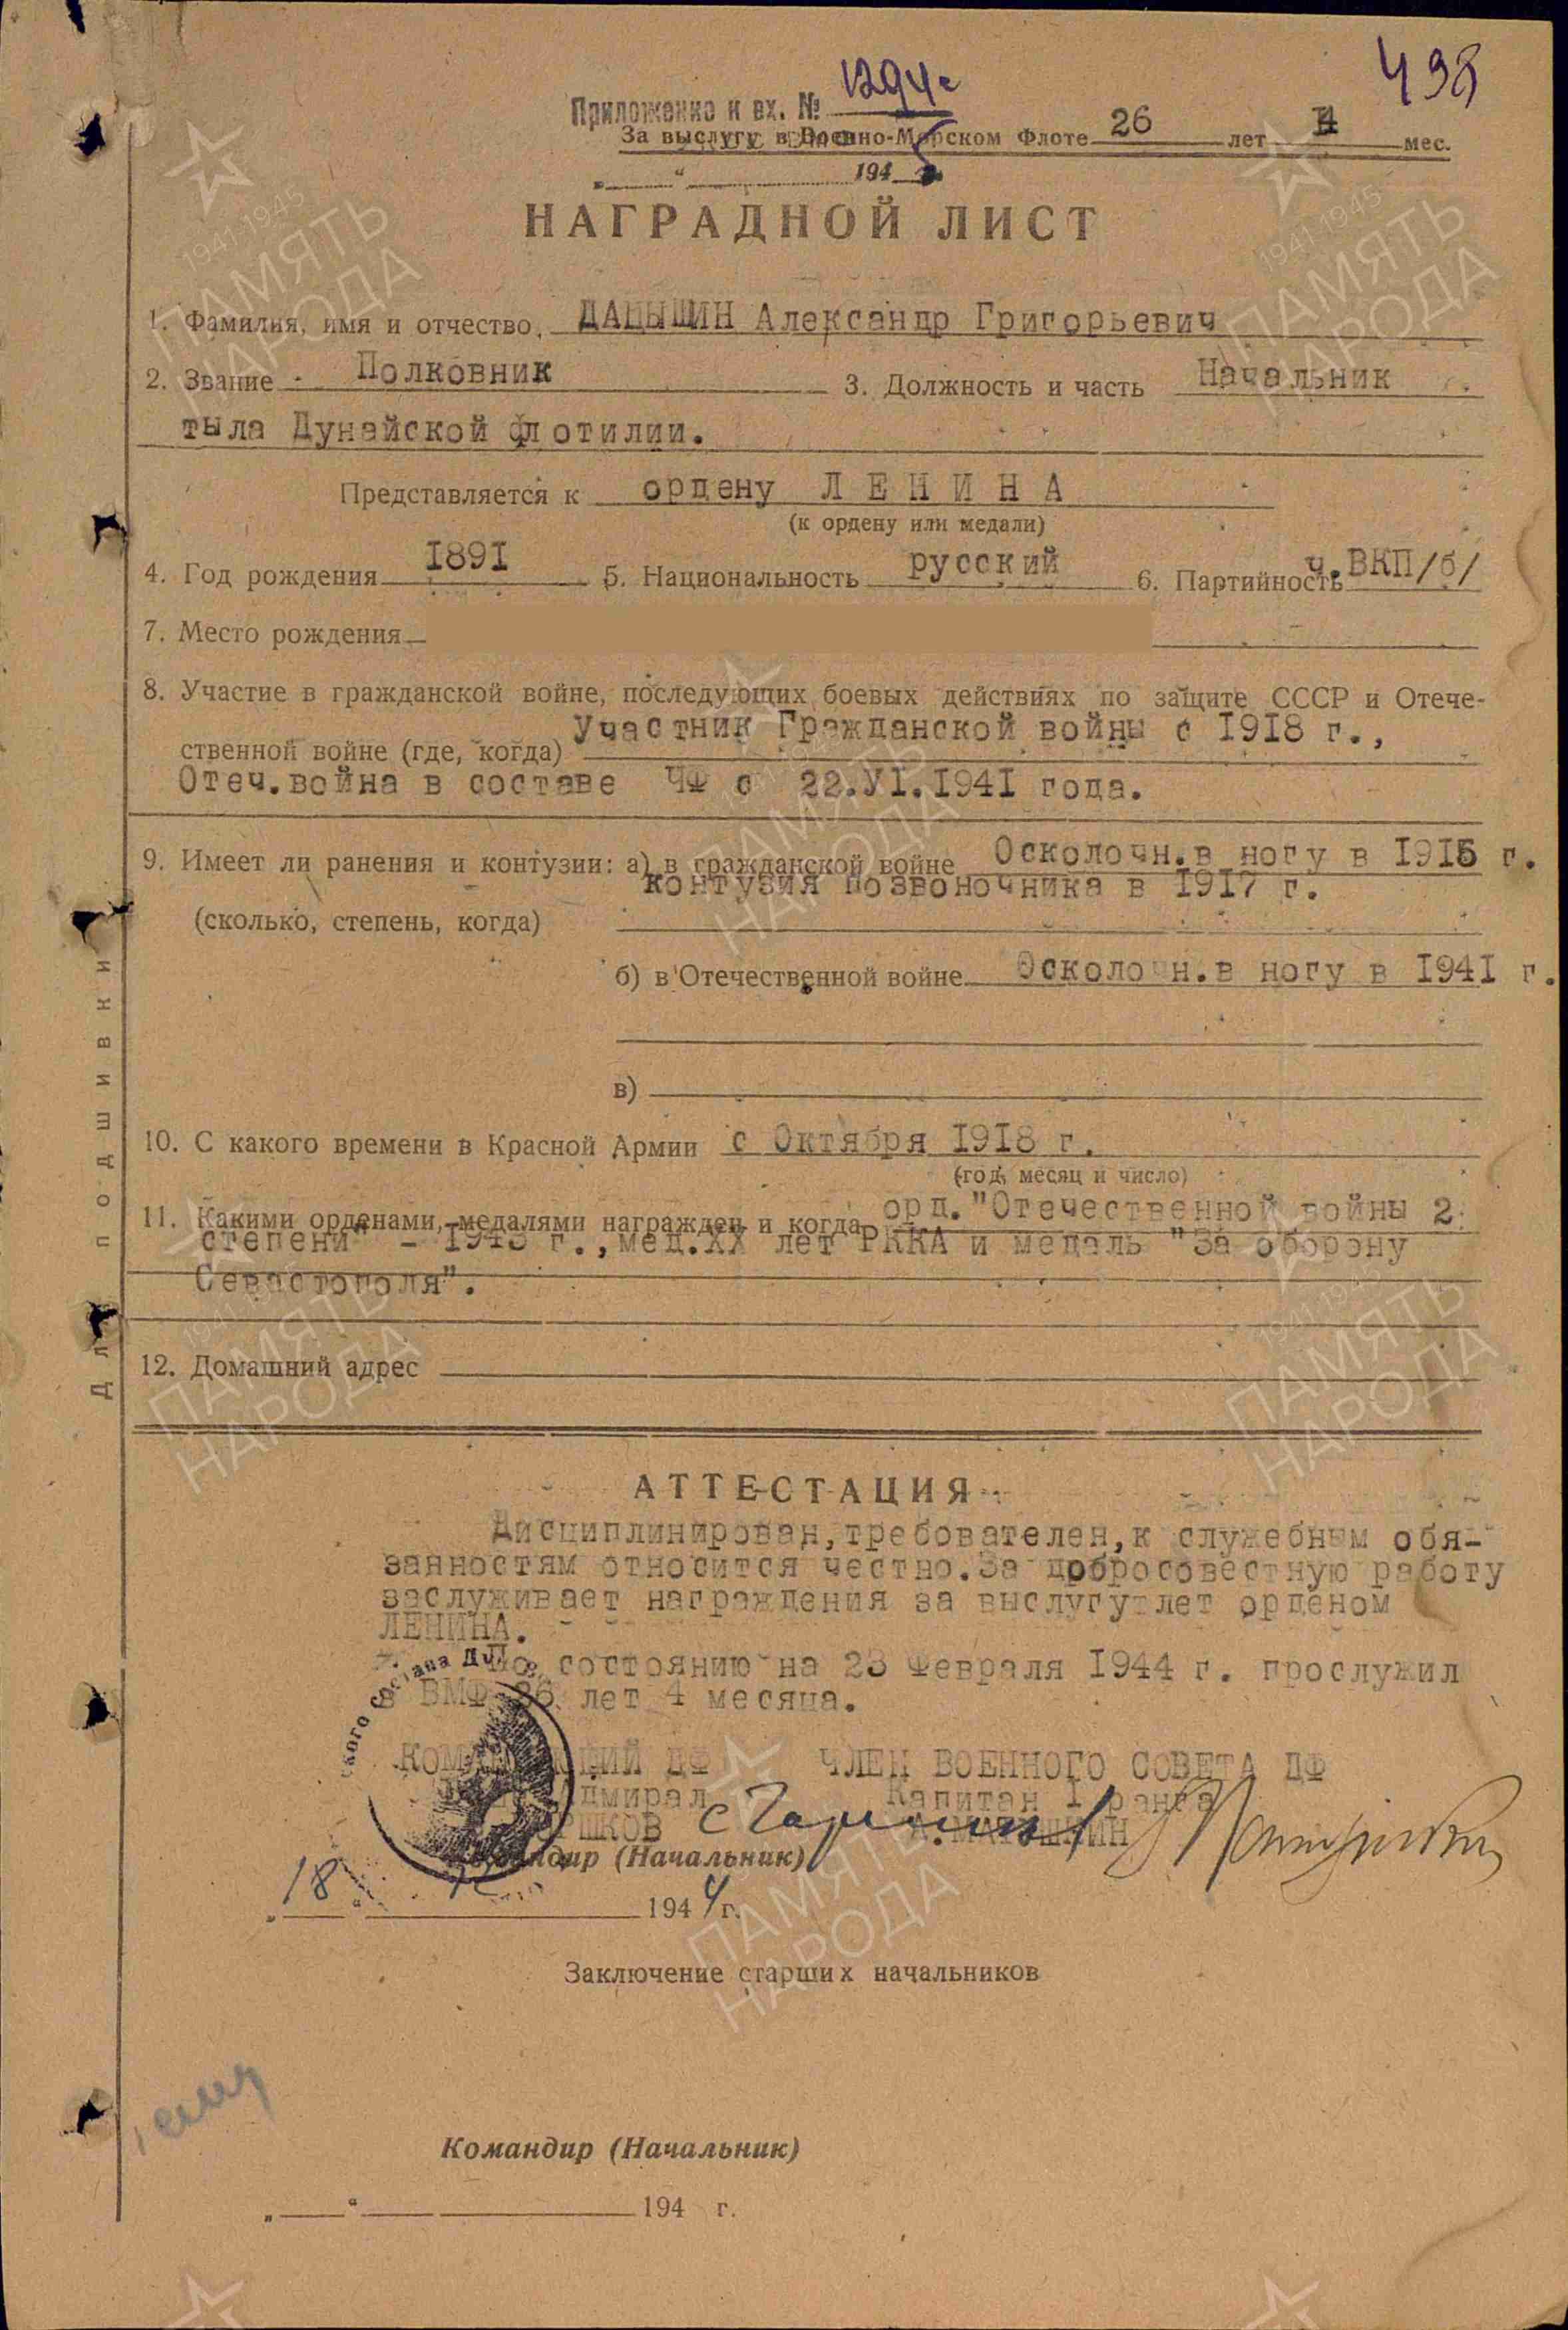 498
Приложение к вх. № 1294с
За выслугу в Военно-Морском Флоте 26 лет 4 мес.
„ “ 194
НАГРАДНОЙ ЛИСТ
1. Фамилия, имя и отчество, ДАЦЫШИН Александр Григорьевич
2. Звание Полковник 3. Должность и часть Начальник
тыла Дунайской флотилии.
Представляется к ордену ЛЕНИНА
(к ордену или медали)
4. Год рождения 1891 5. Национальность русский 6. Партийность ч.ВКП/б/
7. Место рождения
8. Участие в гражданской войне, последующих боевых действиях по защите СССР и Отече-
ственной войне (где, когда) Участник Гражданской войны с 1918 г.,
Отеч.война в составе ЧФ с 22.VI.1941 года.
9. Имеет ли ранения и контузии: а) в гражданской войне Осколочн.в ногу в 1915 г.
контузия позвоночника в 1917 г.
(сколько, степень, когда)
б) в Отечественной войне Осколочн.в ногу в 1941 г.
в)
10. С какого времени в Красной Армии с Октября 1918 г.
(год, месяц и число)
11. Какими орденами, медалями награжден и когда орд."Отечественной войны 2
степени" - 1943 г.,мед.XX лет РККА и медаль "За оборону
Севастополя".
12. Домашний адрес
Для подшивки
АТТЕСТАЦИЯ
Дисциплинирован,требователен,к служебным обя-
занностям относится честно.За добросовестную работу
заслуживает награждения за выслугу лет орденом
ЛЕНИНА.
По состоянию на 23 Февраля 1944 г. прослужил
в ВМФ 26 лет 4 месяца.
КОМАНДУЮЩИЙ ДФ ЧЛЕН ВОЕННОГО СОВЕТА ДФ
Адмирал Капитан 1 ранга
ГОРШКОВ А.МАТУШКИН
Командир (Начальник)
„ 18 “ 1944 г.
Заключение старших начальников
Командир (Начальник)
„ “ 194 г.
1941 1945
ПАМЯТЬ
НАРОДА